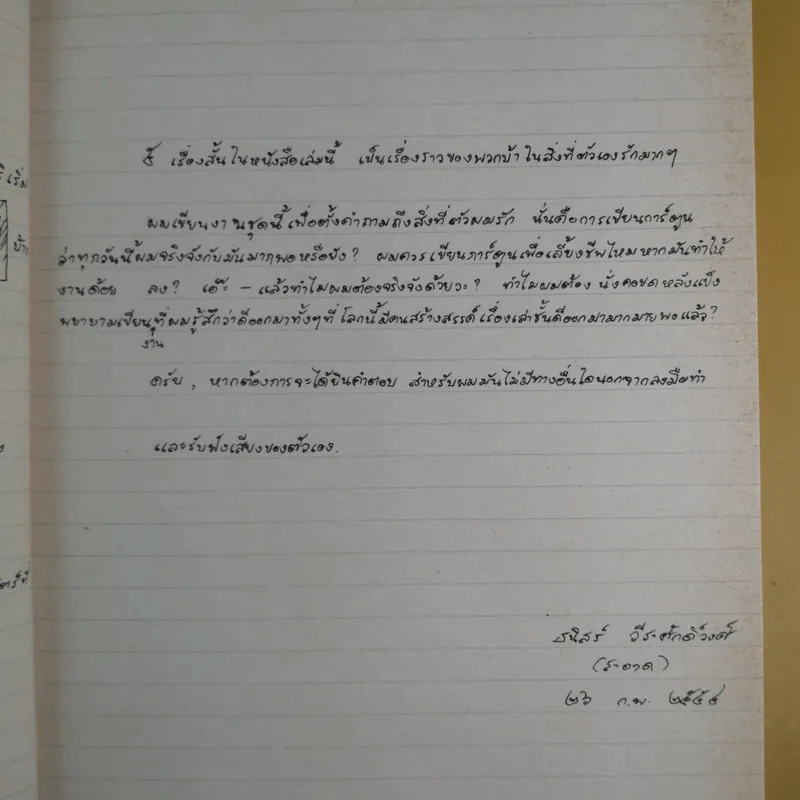 ๕ เรื่องสั้นในหนังสือเล่มนี้ เป็นเรื่องราวของพวกบ้าในสิ่งที่ตัวเองรักมากๆ
ผมเขียนงานชุดนี้เพื่อตั้งคำถามถึงสิ่งที่ตัวผมรัก นั่นคือการเขียนการ์ตูน
ว่าทุกวันนี้ผมจริงจังกับมันมากพอหรือยัง? ผมควรเขียนการ์ตูนเพื่อเลี้ยงชีพไหมหากมันทำให้
งานด้อย ลง? เอ๊ะ - แล้วทำไมผมต้องจริงจังด้วยวะ? ทำไมผมต้อง นั่งคอขดหลังแข็ง
พยายามเขียนงานที่ผมรู้สึกว่าดีออกมาทั้งๆที่ โลกนี้มีคนสร้างสรรค์เรื่องเล่าชั้นดีออกมามากมายพอแล้ว?
ครับ, หากต้องการจะได้ยินคำตอบ สำหรับผมมันไม่มีทางอื่นใดนอกจากลงมือทำ
และรับฟังเสียงของตัวเอง.
ธนิสร์ วีระศักดิ์วงศ์
(สะอาด)
๒๖ ก.พ. ๒๕๕๔
เริ่ม